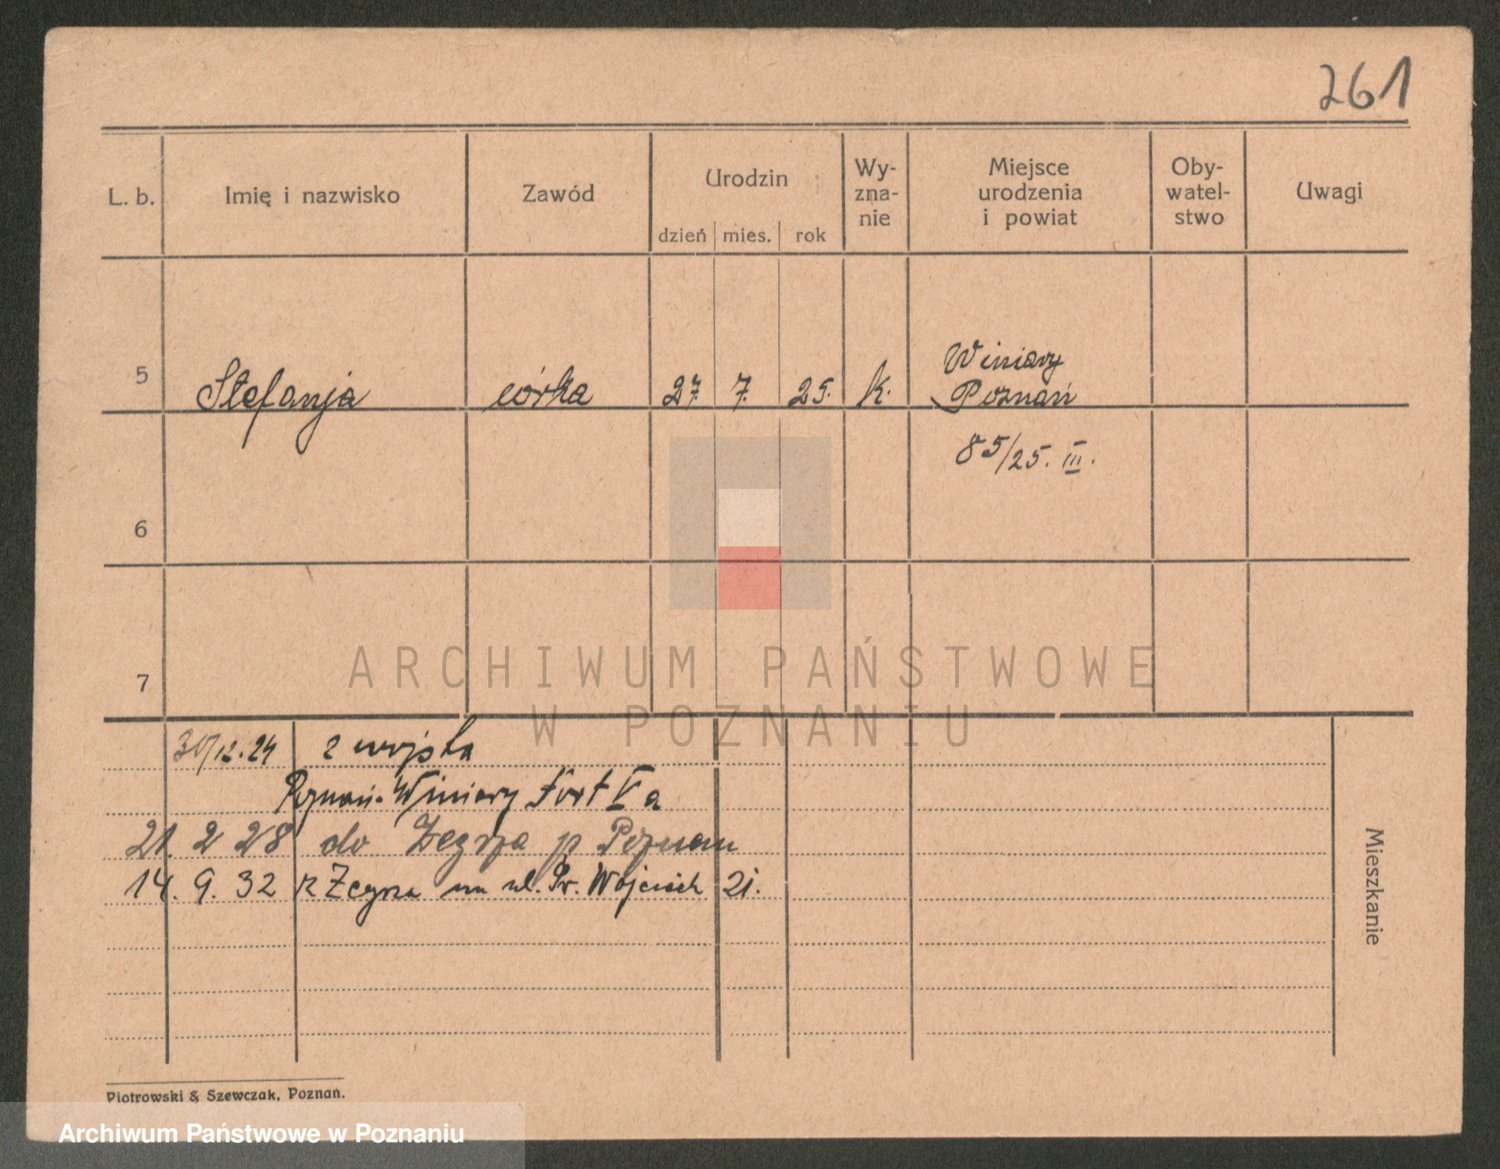 261
L. b. Imię i nazwisko Zawód Urodzin Wy-znanie Miejsce urodzenia i powiat Oby-watel-stwo Uwagi
dzień mies. rok
Winiary
5 Stefanja córka 27. 7. 25. k. Poznań
85/25. III.
6
7
ARCHIWUM PAŃSTWOWE
W POZNANIU
30/12.24 z wojska
Poznań-Winiary Fort Va
21. 2 28 do Żegrza p Poznam
14. 9. 32 z Żegrza na ul. Św. Wojciech 21.
Mieszkanie
Piotrowski & Szewczak, Poznań.
Archiwum Państwowe w Poznaniu